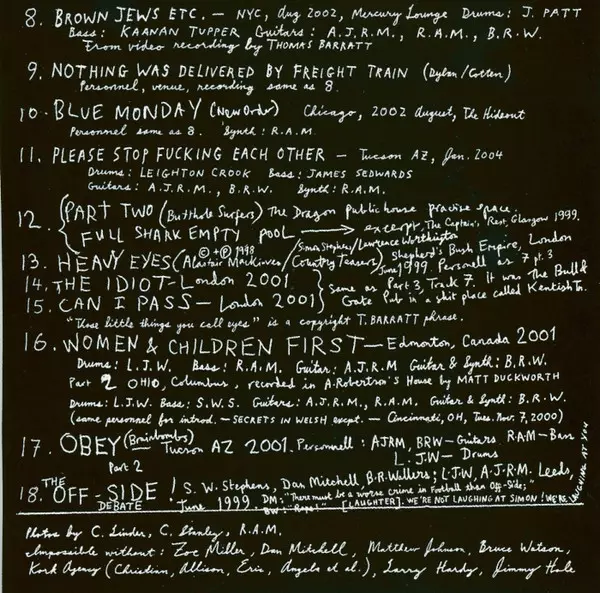 8. BROWN JEWS ETC. — NYC, Aug 2002, Mercury Lounge Drums: J. PATT
Bass: KAANAN TUPPER Guitars: A.J.R.M., R.A.M., B.R.W.
From video recording by THOMAS BARRATT
9. NOTHING WAS DELIVERED BY FREIGHT TRAIN (Dylan/Cotten)
Personnel, venue, recording same as 8.
10. BLUE MONDAY (New Order) Chicago, 2002 August, The Hideout
Personnel same as 8. Synth: R.A.M.
11. PLEASE STOP FUCKING EACH OTHER — Tucson AZ, Jan. 2004
Drums: LEIGHTON CROOK Bass: JAMES SEDWARDS
Guitars: A.J.R.M., B.R.W. Synth: R.A.M.
12. PART TWO (Butthole Surfers) The Dragon Public house practise space.
FULL SHARK EMPTY POOL → excerpt, The Captain's Rest, Glasgow 1999.
13. HEAVY EYES (©+℗ 1998 Alastair MacKinven / Simon Stephens/Lawrence Worthington Country Teasers) Shepherd's Bush Empire, London June 1999. Personell as 7 pt. 3
14. THE IDIOT — London 2001
15. CAN I PASS — London 2001 } Same as Part 3, Track 7. It was The Bull & Gate Pub in a shit place called Kentish Tn.
"Those little things you call eyes" is a copyright T. BARRATT phrase.
16. WOMEN & CHILDREN FIRST — Edmonton, Canada 2001
Drums: L.J.W. Bass: R.A.M. Guitar: A.J.R.M Guitar & Synth: B.R.W.
Part 2 OHIO, Columbus, recorded in A.Robertson's House by MATT DUCKWORTH
Drums: L.J.W. Bass: S.W.S. Guitars: A.J.R.M., R.A.M. Guitar & Synth: B.R.W.
(same personnel for introd. — SECRETS IN WELSH except. — Cincinnati, OH, Tues. Nov. 7, 2000)
17. OBEY (Brainbombs) — Tucson AZ 2001. Personnell: AJRM, BRW—Guitars R.A.M—Bass
Part 2 L.J.W— Drums
18. THE OFF-SIDE DEBATE! S.W. Stephens, Dan Mitchell, B.R. Wallers; L.J.W, A.J.R.M. Leeds,
June 1999. DM: "There must be a worse crime in Football than Off-Side;"
BW: "Rape!" [LAUGHTER]. WE'RE NOT LAUGHING AT SIMON! WE'RE LAUGHING AT YOU
Photos by C. Linder, C. Stanley, R.A.M.
Impossible without: Zoe Miller, Dan Mitchell, Matthew Johnson, Bruce Watson,
Kork Agency (Christian, Allison, Eric, Angela et al.), Larry Hardy, Jimmy Hole